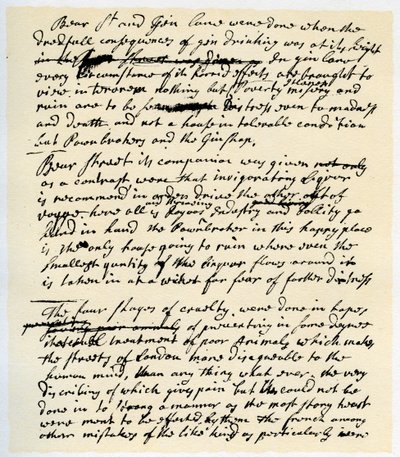 Bear St and Gin Lane were done when the
dredfull consequences of gin drinking was at its hight
In gin lane
every circumstance of its horid effects are brought to
view in terorem nothing but Poverty misery and
ruin are to be distress even to madness
and death and not a house in tolerable condition
but Pawnbrokers and the Ginshop.
Bear Street its companion was given not only
as a contrast were that invigorating liquor
is recommend in orden drive the other out of
vogue. here all is Joyous Industry and Jollity go
hand in hand the Pawnbroker in this happy place
is the only house going to ruin where even the
smallest quntity of the liquer flows around it
is taken in at a wicket for fear of farther distress
The four stages of cruelty. were done in hopes
of preventing in some degree
that cruel treatment of poor Animals which makes
the streets of London more disagreable to the
human mind, than any thing what ever. the very
discribing of which gives pain but this could not be
done in so strong a manner as the most stony heart
were ment to be effected by them the french among
other mistakes of the like kind as particularly were